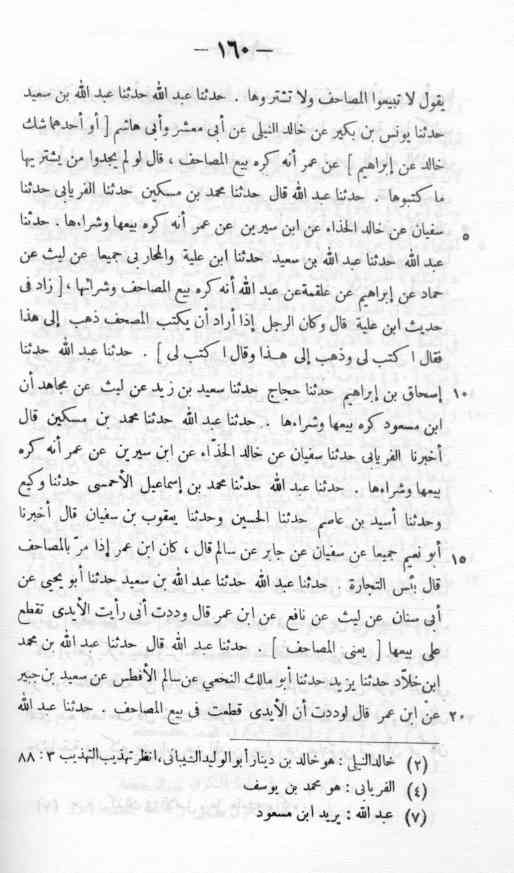 — ١٦٠ —
يقول لا تبيعوا المصاحف ولا تشتروها . حدثنا عبد الله حدثنا عبد الله بن سعيد
حدثنا يونس بن بكير عن خالد النيلى عن أبى معشر وأبى هاشم [ أو أحدهما شك
خالد عن إبراهيم ] عن عمر أنه كره بيع المصاحف ، قال لو لم يجدوا من يشتريها
ما كتبوها . حدثنا عبد الله قال حدثنا محمد بن مسكين حدثنا الفريابى حدثنا
٥ سفيان عن خالد الحذاء عن ابن سيرين عن عمر أنه كره بيعها وشراءها . حدثنا
عبد الله حدثنا عبد الله بن سعيد حدثنا ابن علية والمحاربى جميعا عن ليث عن
حماد عن إبراهيم عن علقمة عن عبد الله أنه كره بيع المصاحف وشرائها ، [ زاد فى
حديث ابن علية قال وكان الرجل إذا أراد أن يكتب المصحف ذهب إلى هذا
فقال اكتب لى وذهب إلى هذا وقال اكتب لى ] . حدثنا عبد الله حدثنا
١٠ إسحاق بن إبراهيم حدثنا حجاج حدثنا سعيد بن زيد عن ليث عن مجاهد أن
ابن مسعود كره بيعها وشراءها . حدثنا عبد الله حدثنا محمد بن مسكين قال
أخبرنا الفريابى حدثنا سفيان عن خالد الحذّاء عن ابن سيرين عن عمر أنه كره
بيعها وشراءها . حدثنا عبد الله حدثنا محمد بن إسماعيل الأحمسى حدثنا وكيع
وحدثنا أسيد بن عاصم حدثنا الحسين وحدثنا يعقوب بن سفيان قال أخبرنا
١٥ أبو نعيم جميعا عن سفيان عن جابر عن سالم قال ، كان ابن عمر إذا مرّ بالمصاحف
قال بئس التجارة . حدثنا عبد الله حدثنا عبد الله بن سعيد حدثنا أبو يحيى عن
أبى سنان عن ليث عن نافع عن ابن عمر قال وددت أنى رأيت الأيدى تقطع
على بيعها [ يعنى المصاحف ] . حدثنا عبد الله قال حدثنا عبد الله بن محمد
ابن خلّاد حدثنا يزيد حدثنا أبو مالك النخعي عن سالم الأفطس عن سعيد بن جبير
٢٠ عن ابن عمر قال لوددت أن الأيدى قطعت فى بيع المصاحف . حدثنا عبد الله
(٢) خالد النيلى : هو خالد بن دينار أبو الوليد الشيبانى، انظر تهذيب التهذيب ٣ : ٨٨
(٤) الفريابى : هو محمد بن يوسف
(٧) عبد الله : يريد ابن مسعود